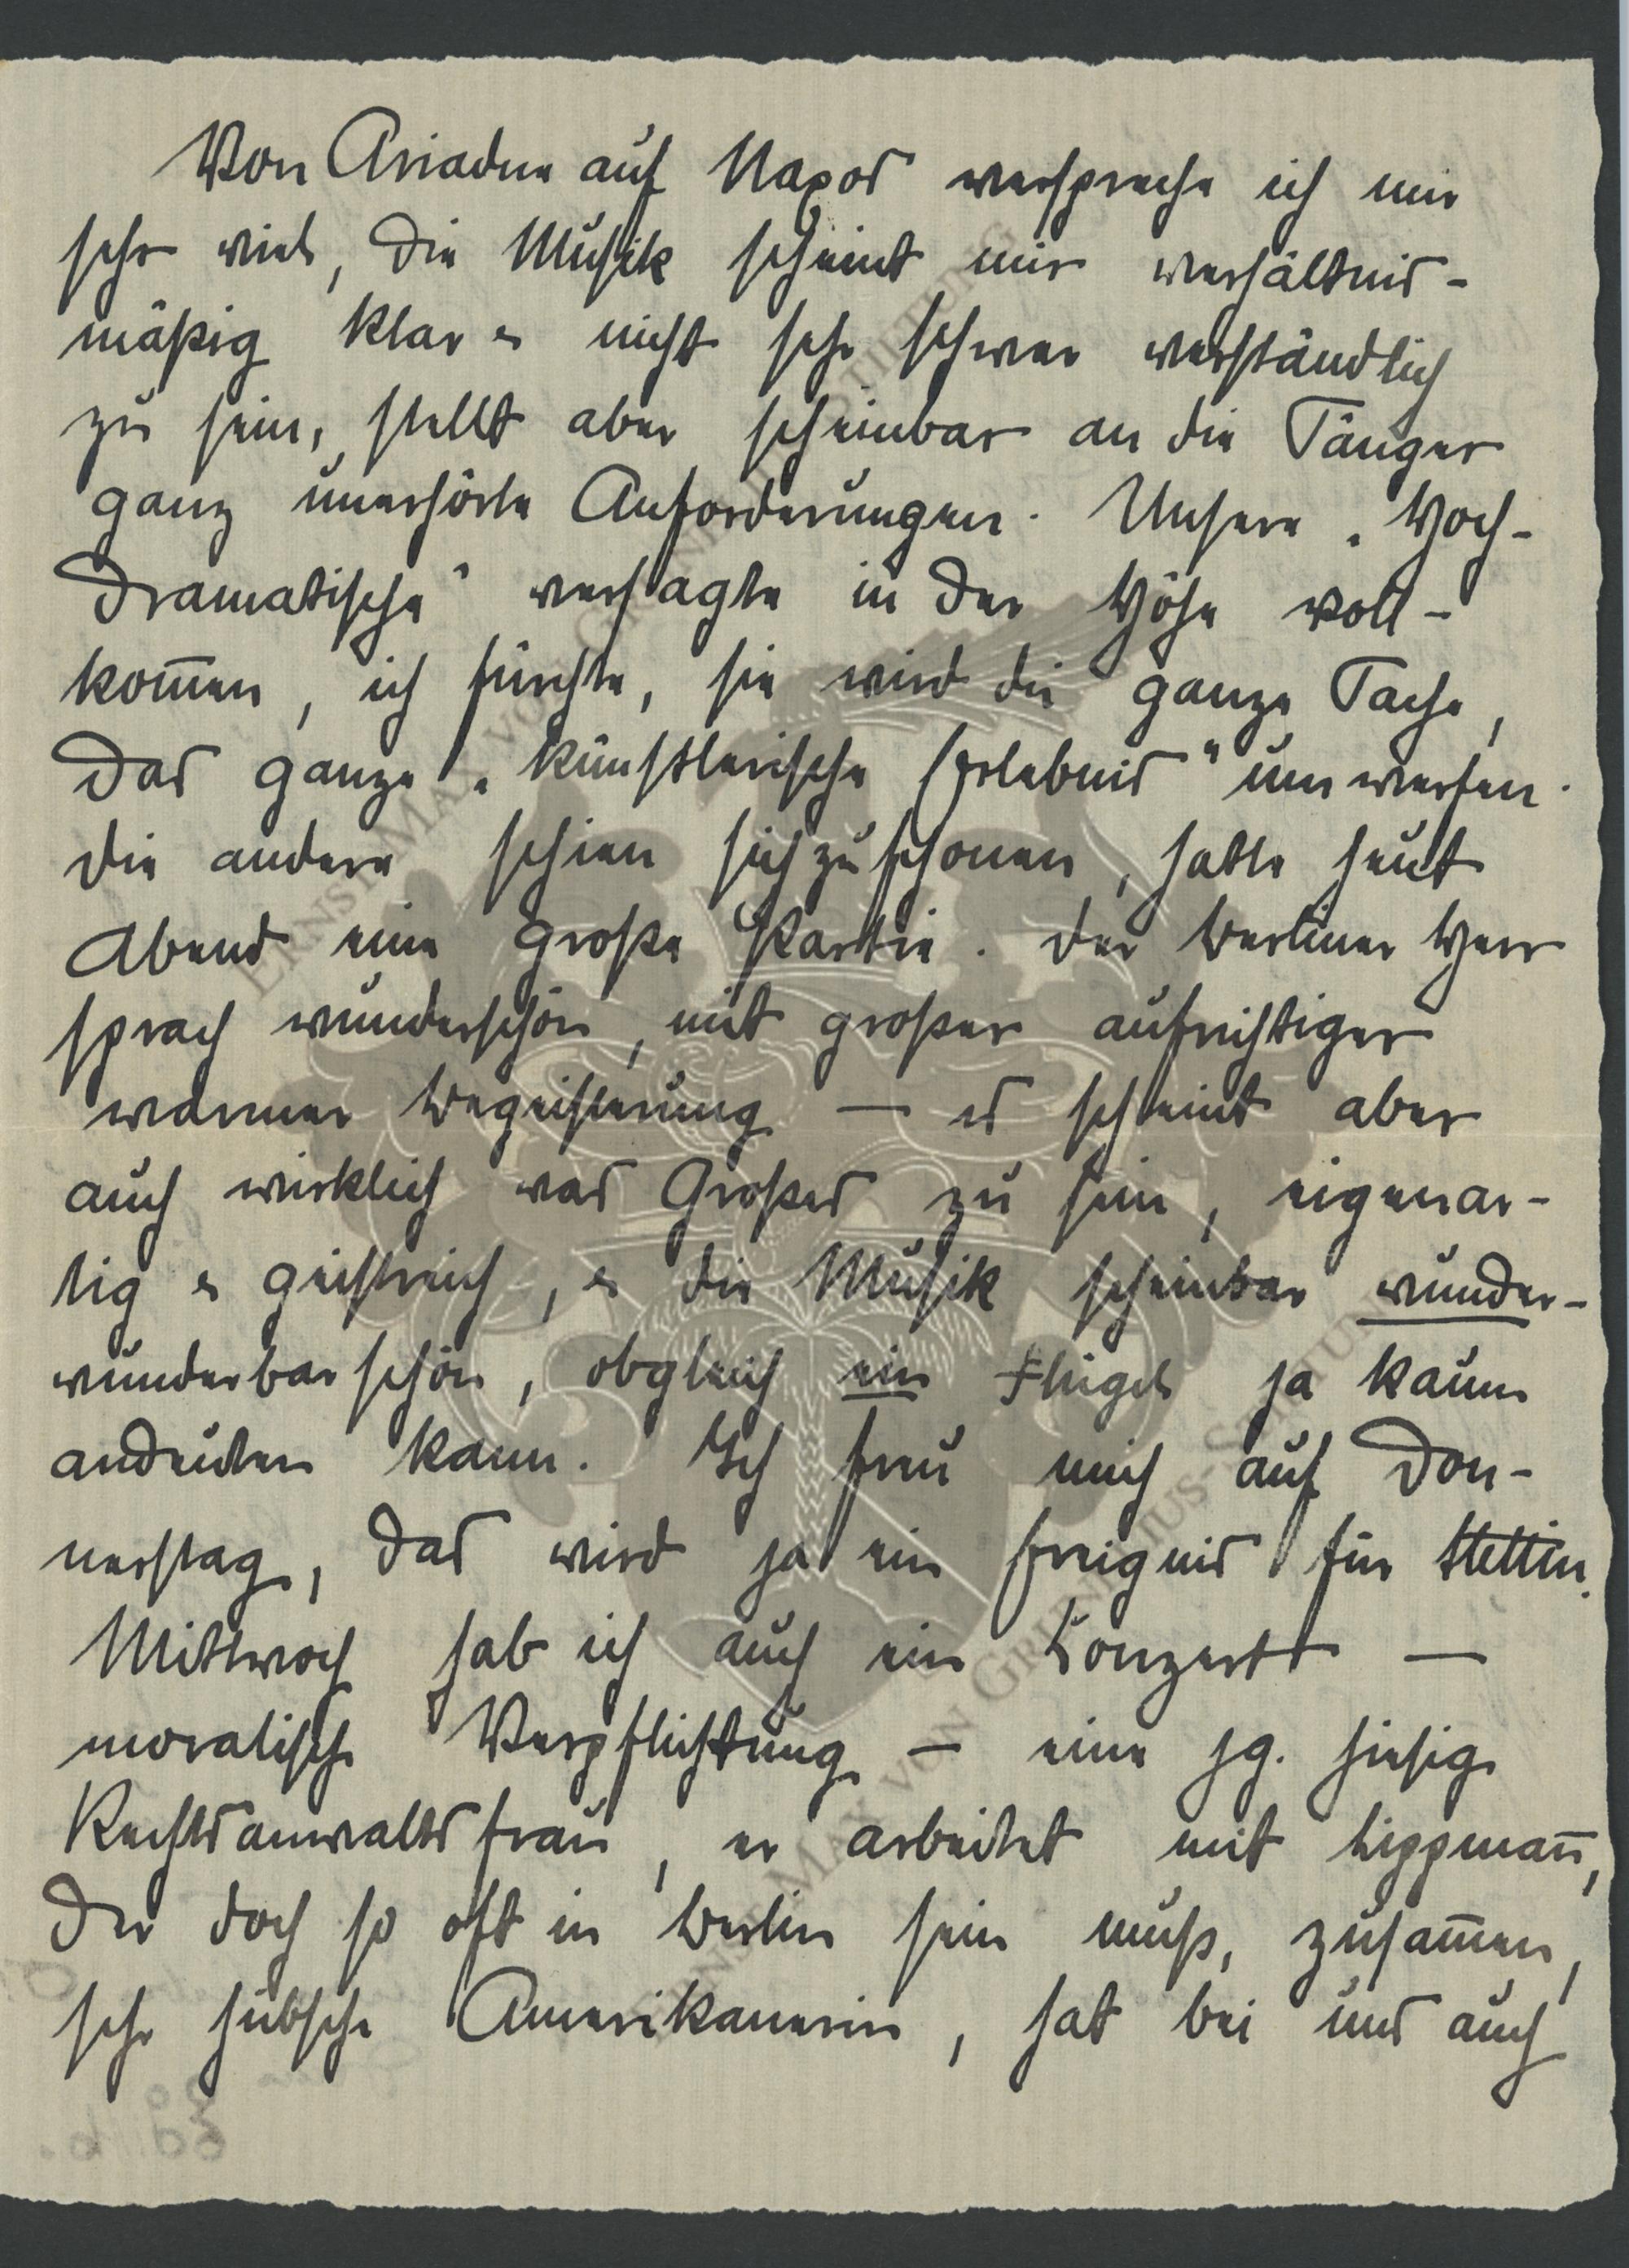 Von Ariadne auf Naxos verspreche ich mir
sehr viel, die Musik scheint mir verhältnis-
mäßig klar u nicht sehr schwer verständlich
zu sein, stellt aber scheinbar an die Sänger
ganz unerhörte Anforderungen. Unsere „Hoch-
dramatische" versagte in der Höhe voll-
kom̄en, ich fürchte, sie wird die ganze Sache,
das ganze „künstlerische Erlebnis" umwerfen.
die andere schien sich zu schonen, hatte heut
Abend eine große Partie. der Berliner Herr
sprach wunderschön, mit großer aufrichtiger
warmer Begeisterung — es scheint aber
auch wirklich was Großes zu sein, eigenar-
tig u geistreich, u die Musik scheinbar wunder-
wunderbar schön, obgleich ein Flügel ja kaum
andeuten kann. Ich freu mich auf Don-
nerstag, das wird ja ein Ereignis für Stettin.
Mittwoch hab ich auch ein Konzert —
moralische Verpflichtung — eine jg. hiesige
Rechtsanwaltsfrau, er arbeitet mit Lippman̄,
der doch so oft in Berlin sein muß, zusam̄en,
sehr hübsche Amerikanerin, hat bei uns auch
ERNST MAX VON GRUNELIUS-STIFTUNG
ERNST MAX VON GRUNELIUS-STIFTUNG